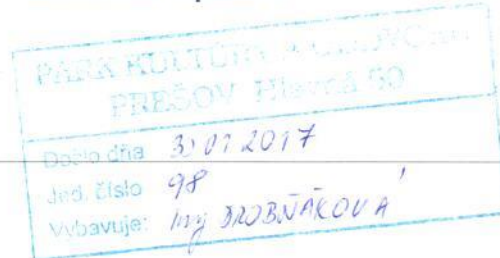 PARK KULTÚRY A
PREŠOV Hlavná 50
Došlo dňa 30 01 2017
Jed. číslo 98
Vybavuje: Ing DROBŇÁKOVÁ